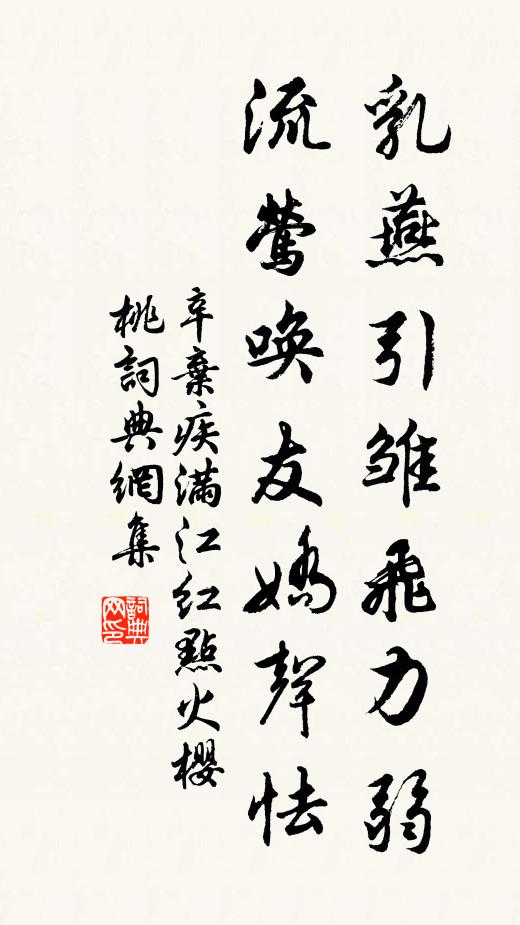 乳燕引雏飛力弱
流鶯喚友嬌聲怯
辛棄疾满江红點火櫻
桃詞典網集
詞典网印